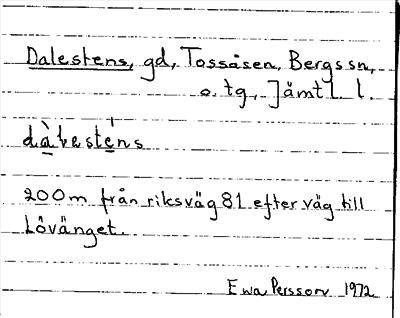 Dalestens, gd, Tossåsen, Bergs sn,
o. tg, Jämtl. l.
dàlesténs
200m från riksväg 81 efter väg till
Lövänget.
Ewa Persson 1972